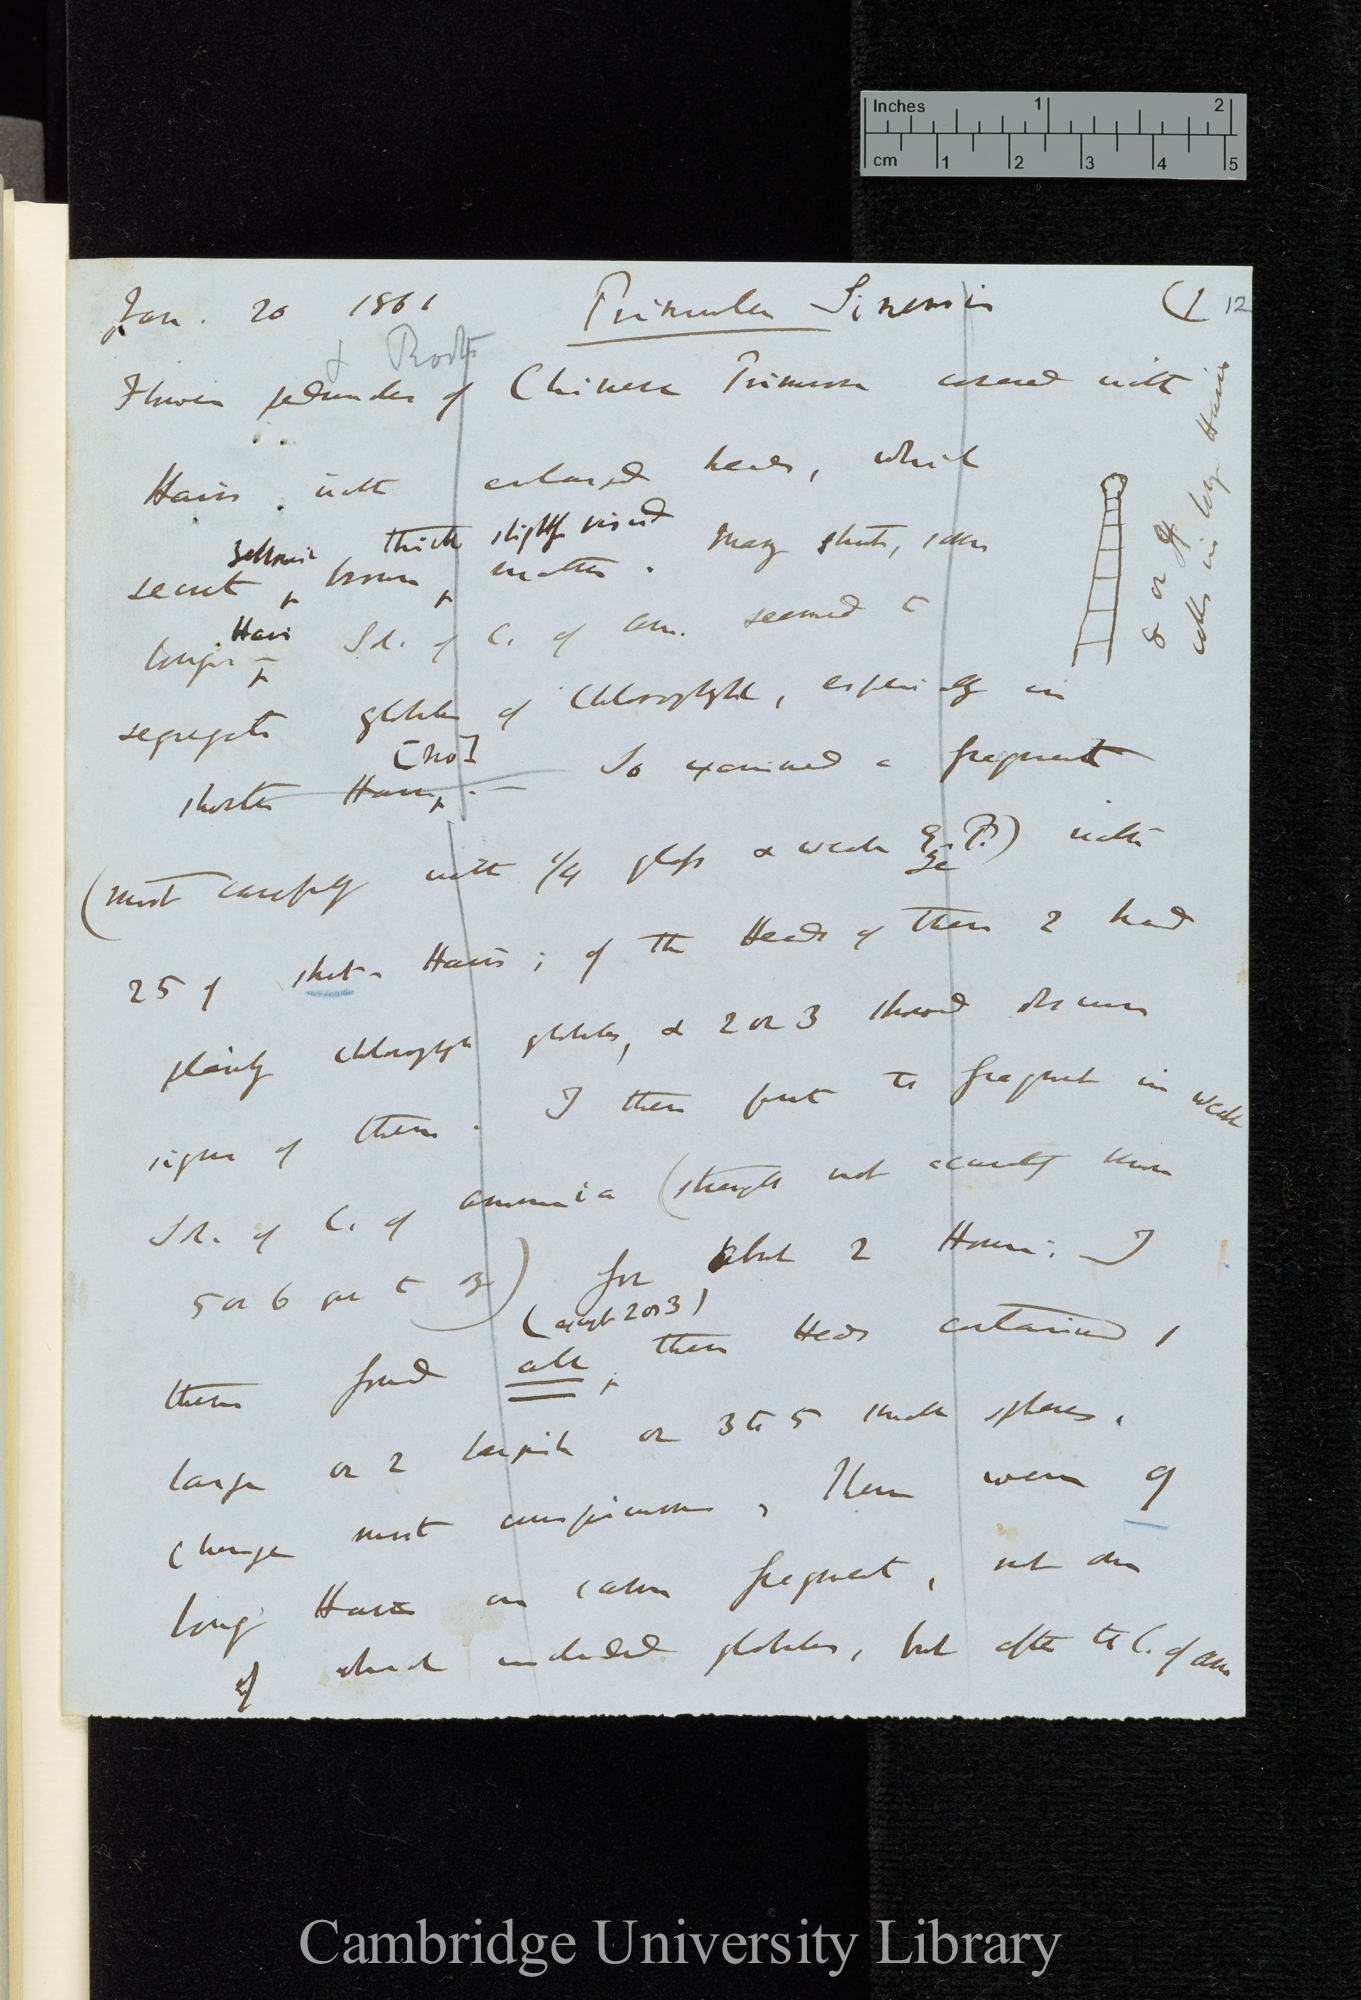 Inches 1 2
cm 1 2 3 4 5
Jan. 20 1861 Primula Sinensis (1 12
& Roots
Flower peduncles of Chinese Primrose covered with
Hairs with enlarged heads, which
yellowish thick slightly viscid
secrete brown matter. Many short, some
longer Hairs Sol. of C. of Am. seemed to
segregate globules of Chlorophyll, especially in
[no]
shorter Hairs. — So examined a fragment
(most carefully with 1/4 glass & weak) with
25 of short Hairs; of the Heads of these 2 had
plainly chlorophyll globules, & 2 or 3 showed obscure
signs of them. I then put the fragment in weak
Sol. of C. of ammonia (strength not accurately known
5 or 6 gr to oz) for about 2 Hours: I
(except 2 or 3)
then found all these Heads contained 1
large or 2 largish or 3 to 5 small spheres.
Change most conspicuous, There were 9
long Hairs on same fragment, not one
of which included globules, but after the C. of Am
8 or 9
cells in long Hairs
Cambridge University Library